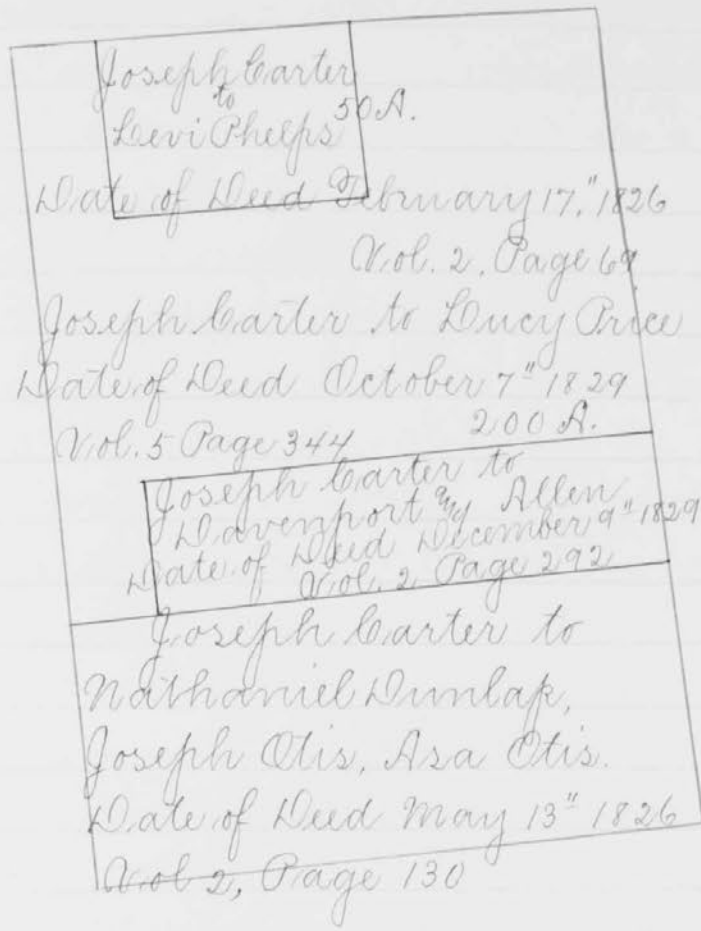 Joseph Carter
to
Levi Phelps 50 A.
Date of Deed February 17," 1826
Vol. 2. Page 69
Joseph Carter to Lucy Price
Date of Deed October 7" 1829
Vol. 5 Page 344 200 A.
Joseph Carter to
Davenport Allen
Date of Deed December 9" 1829
Vol. 2 Page 292
Joseph Carter to
Nathaniel Dunlap,
Joseph Otis, Asa Otis.
Date of Deed May 13" 1826
Vol 2, Page 130